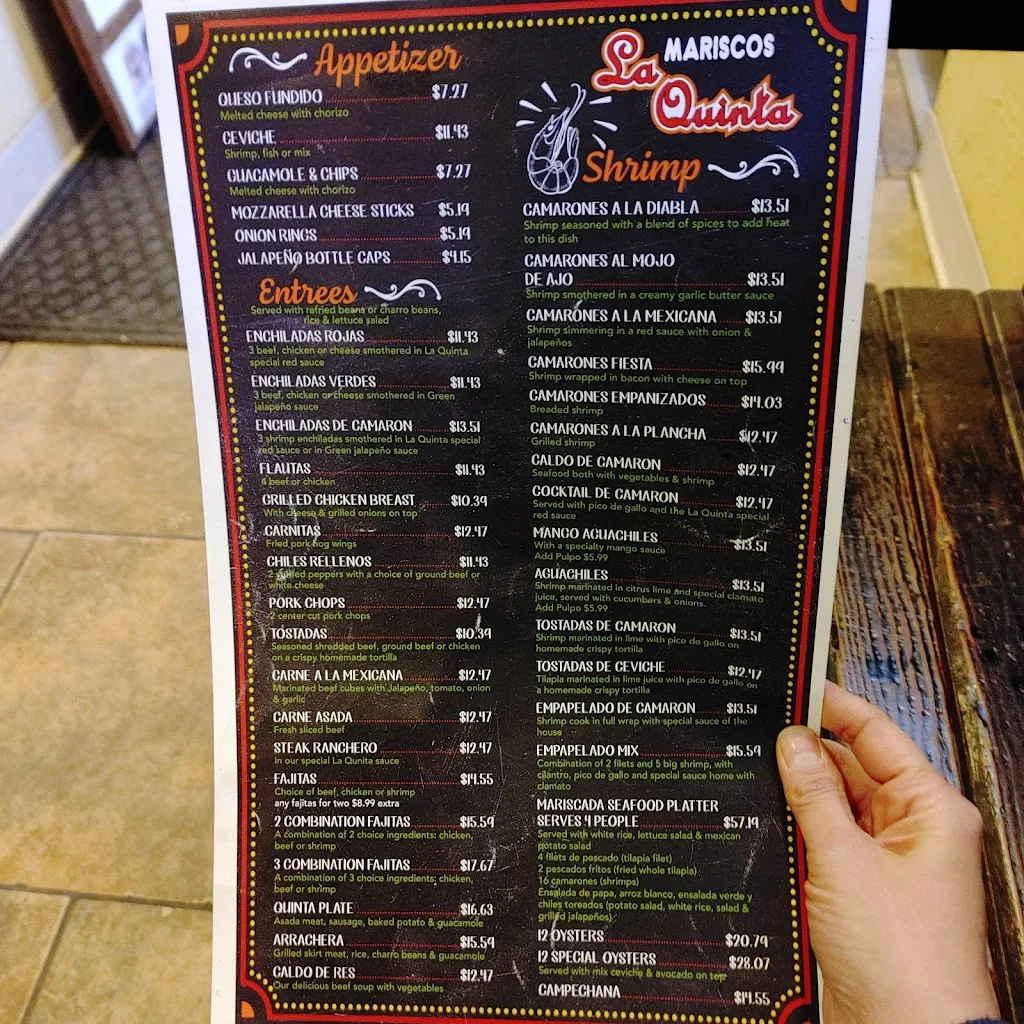 Appetizer
QUESO FUNDIDO $7.27
Melted cheese with chorizo
CEVICHE $11.43
Shrimp, fish or mix
GUACAMOLE & CHIPS $7.27
Melted cheese with chorizo
MOZZARELLA CHEESE STICKS $5.19
ONION RINGS $5.19
JALAPEÑO BOTTLE CAPS $4.15
Entrees
Served with refried beans or charro beans,
rice & lettuce salad
ENCHILADAS ROJAS $11.43
3 beef, chicken or cheese smothered in La Quinta
special red sauce
ENCHILADAS VERDES $11.43
3 beef, chicken or cheese smothered in Green
jalapeño sauce
ENCHILADAS DE CAMARON $13.51
3 shrimp enchiladas smothered in La Quinta special
red sauce or in Green jalapeño sauce
FLAUTAS $11.43
4 beef or chicken
GRILLED CHICKEN BREAST $10.39
With cheese & grilled onions on top
CARNITAS $12.47
Fried pork hog wings
CHILES RELLENOS $11.43
2 stuffed peppers with a choice of ground beef or
white cheese
PORK CHOPS $12.47
2 center cut pork chops
TOSTADAS $10.39
Seasoned shredded beef, ground beef or chicken
on a crispy homemade tortilla
CARNE A LA MEXICANA $12.47
Marinated beef cubes with Jalapeño, tomato, onion
& garlic
CARNE ASADA $12.47
Fresh sliced beef
STEAK RANCHERO $12.47
In our special La Qunita sauce
FAJITAS $14.55
Choice of beef, chicken or shrimp
any fajitas for two $8.99 extra
2 COMBINATION FAJITAS $15.59
A combination of 2 choice ingredients: chicken,
beef or shrimp
3 COMBINATION FAJITAS $17.67
A combination of 3 choice ingredients: chicken,
beef or shrimp
QUINTA PLATE $16.63
Asada meat, sausage, baked potato & guacamole
ARRACHERA $15.59
Grilled skirt meat, rice, charro beans & guacamole
CALDO DE RES $12.47
Our delicious beef soup with vegetables
MARISCOS
La
Quinta
Shrimp
CAMARONES A LA DIABLA $13.51
Shrimp seasoned with a blend of spices to add heat
to this dish
CAMARONES AL MOJO
DE AJO $13.51
Shrimp smothered in a creamy garlic butter sauce
CAMARONES A LA MEXICANA $13.51
Shrimp simmering in a red sauce with onion &
jalapeños
CAMARONES FIESTA $15.99
Shrimp wrapped in bacon with cheese on top
CAMARONES EMPANIZADOS $14.03
Breaded shrimp
CAMARONES A LA PLANCHA $12.47
Grilled shrimp
CALDO DE CAMARON $12.47
Seafood both with vegetables & shrimp
COCKTAIL DE CAMARON $12.47
Served with pico de gallo and the La Quinta special
red sauce
MANGO AGUACHILES $13.51
With a specialty mango sauce
Add Pulpo $5.99
AGUACHILES $13.51
Shrimp marinated in citrus lime and special clamato
juice, served with cucumbers & onions.
Add Pulpo $5.99
TOSTADAS DE CAMARON $13.51
Shrimp marinated in lime with pico de gallo on
homemade crispy tortilla
TOSTADAS DE CEVICHE $12.47
Tilapia marinated in lime juice with pico de gallo on
a homemade crispy tortilla
EMPAPELADO DE CAMARON $13.51
Shrimp cook in full wrap with special sauce of the
house
EMPAPELADO MIX $15.59
Combination of 2 filets and 5 big shrimp, with
cilantro, pico de gallo and special sauce home with
clamato
MARISCADA SEAFOOD PLATTER
SERVES 4 PEOPLE $57.19
Served with white rice, lettuce salad & mexican
potato salad
4 filets de pescado (tilapia filet)
2 pescados fritos (fried whole tilapia)
16 camarones (shrimps)
Ensalada de papa, arroz blanco, ensalada verde y
chiles toreados (potato salad, white rice, salad &
grilled jalapeños)
12 OYSTERS $20.79
12 SPECIAL OYSTERS $28.07
Served with mix ceviche & avocado on top
CAMPECHANA $14.55